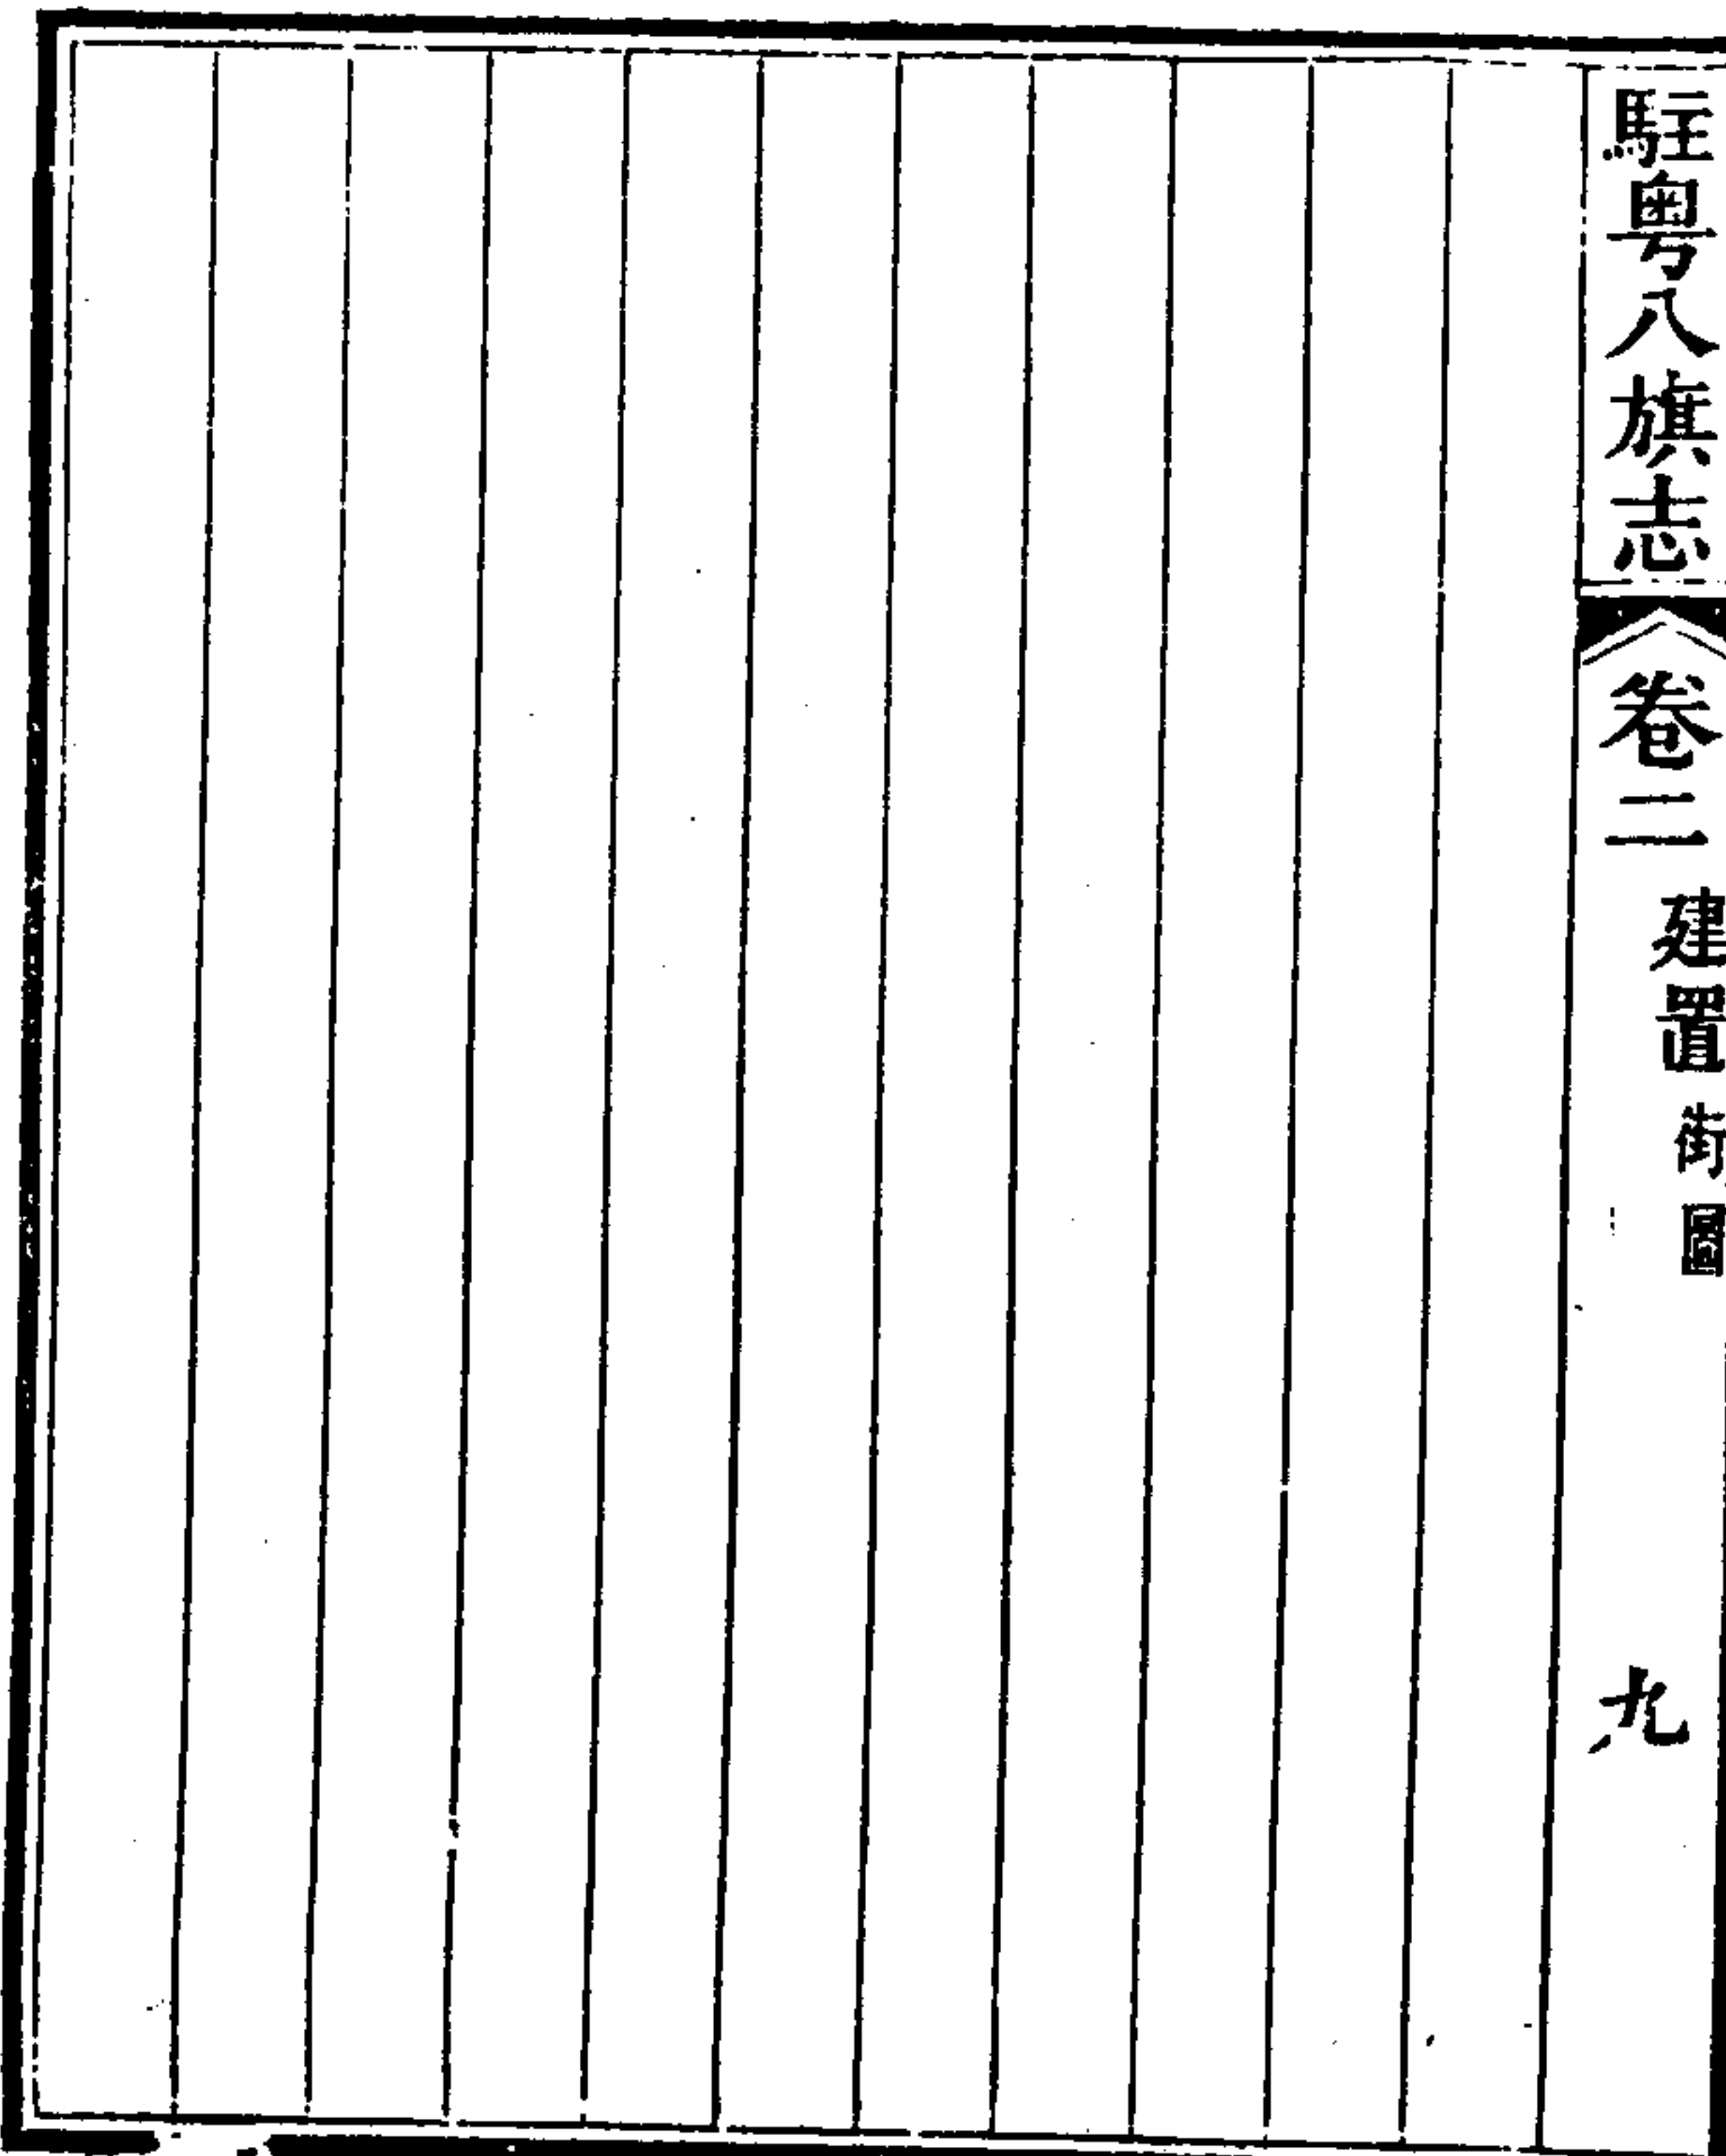 駐粤八旗志 卷二 建置 街圖 九